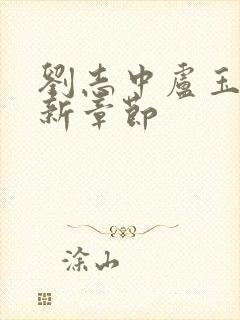 劉志中盧玉
新章節
涂山